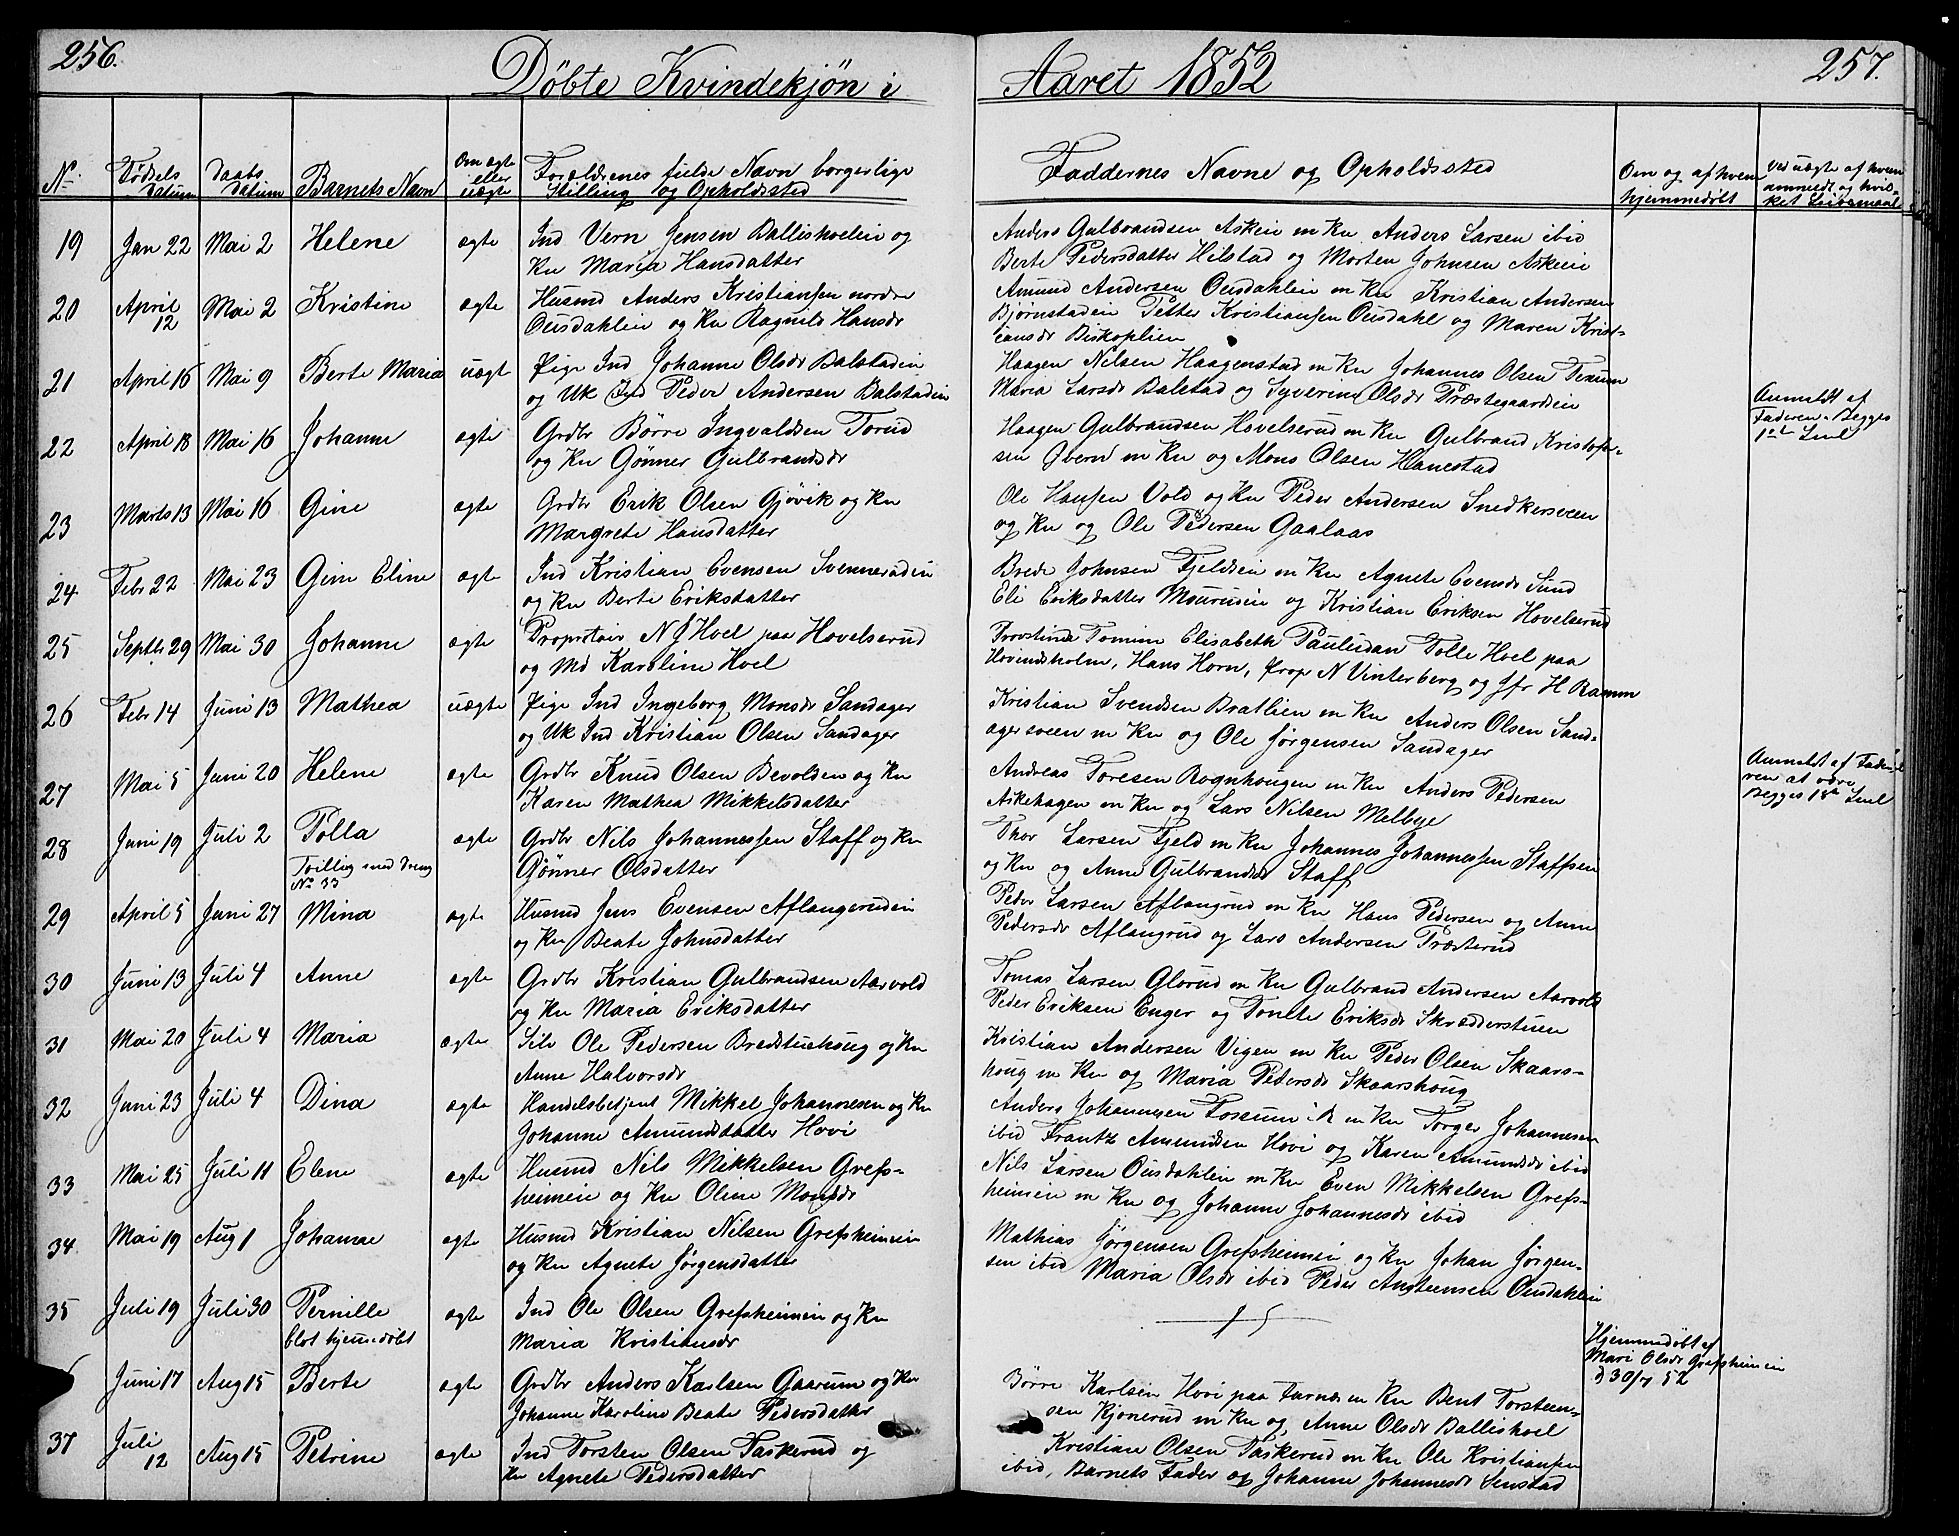 256.
Döbte Kvindekjøn i
Aaret 1852
257.
No Føddels Datum Daabs Datum Barnets Navn Om ægte eller uægte Forældrenes fulde Navn borgerlige Stilling og Opholdssted
Faddernes Navne og Opholdssted Om og af hvem hjemmedøbt Ved uægte af hvem anmeldt og hvilket Leiermaal
19 Jan 22 Mai 2 Helene ægte Ind Vern Jensen Ballishoelein og
Kn Maria Hansdatter
Anders Gulbrandsen Askeie m Kn Anders Larsen ibid
Berte Pedersdatter Hilstad og Morten Johnsen Askeie
20 April 12 Mai 2 Kristine ægte Husmd Anders Kristiansen nordre
Ousdahlein og Kn Ragnild Hansdr
Amund Andersen Ousdahlein m Kn Kristian Andersen
Bjørnstadein Petter Kristiansen Ousdahl og Maren Krist-
iansdr Biskoplien
21 April 16 Mai 9 Berte Maria uægt Pige Ind Johanne Olsdr Balstadein
og Uk Ind Peder Andersen Balstadein
Haagen Nilsen Haagenstad m Kn Johannes Olsen Texum
Maria Larsdr Balstad og Syverine Olsdr Præstegaardein
Anmeldt af
Faderen. Begges
1ste Leul
22 April 18 Mai 16 Johanne ægte Grdbr Börre Ingvaldsen Torud
og Kn Gönner Gulbrandsdr
Haagen Gulbrandsen Hovelserud m Kn Gulbrand Kristofer-
sen Øvern m Kn og Mons Olsen Hanestad
23 Marts 13 Mai 16 Gine ægte Grdbr Erik Olsen Gjövik og Kn
Margrete Hansdatter
Ole Hansen Vold og Kn Peder Andersen Snedkersveen
og Kn og Ole Pedersen Gaalaas
24 Febr 22 Mai 23 Gine Eline ægte Ind Kristian Evensen Svennerudein
og Kn Berte Eriksdatter
Brede Johnsen Fjeldsein m Kn Agnete Evensdr Sund
Eli Eriksdatter Mourudein og Kristian Eriksen Hovelserud
25 Septbr 29 Mai 30 Johanne ægte Proprietair N J Hoel paa Hovelserud
og Md Karoline Hoel
Provstinde Tomine Elisabeth Paulidan Tolle Hoel paa
Hovindsholm, Hans Horn, prop N Vinterberg og Jfr H Ramm
26 Febr 14 Juni 13 Mathea uægte Pige Ind Ingeborg Monsdr Sandager
og Uk Ind Kristian Olsen Sandager
Kristian Svendsen Bratlien m Kn Anders Olsen Sand-
agersveen m Kn og Ole Jørgensen Sandager
Anmeldt af Fade-
ren at være
Begges 1ste Leul
27 Mai 5 Juni 20 Helene ægte Grdbr Knud Olsen Bevolden og Kn
Karen Mathea Mikkelsdatter
Andreas Toresen Rognhougen m Kn Anders Pedersen
Askehagen m Kn og Lars Nilsen Melbye
28 Juni 19 Juli 2 Polla ægte Grdbr Nils Johannessen Staff og Kn
Tvilling med Dreng
No 33
Gönner Olsdatter
Thor Larsen Fjeld m Kn Johannes Johannessen Staffsen
og Kn og Anne Gulbrandsdr Staff
29 April 5 Juni 27 Mina ægte Husmd Jens Evensen Aflangerudein
og Kn Beate Johnsdatter
Peder Larsen Aflangrud m Kn Hans Pedersen og Anne
Pedersdr Aflangrud og Lars Andersen Præsterud
30 Juni 13 Juli 4 Anne ægte Grdbr Kristian Gulbrandsen Aarvold
og Kn Maria Eriksdatter
Tomas Larsen Glorud m Kn Gulbrand Andersen Aarvold
Peder Eriksen Enger og Tonette Eriksdr Skrædderstuen
31 Mai 20 Juli 4 Maria ægte Selv Ole Pedersen Bredstuehoug og Kn
Anne Halvorsdr
Kristian Andersen Vigen m Kn Peder Olsen Skaars-
houg m Kn og Maria Petersdr Skaarshoug
32 Juni 23 Juli 4 Dina ægte Handelsbetjent Mikkel Johannesen og Kn
Johanne Amundsdatter Hovi
Anders Johannesen Fossum i R m Kn Torger Johannesen
ibid Frantz Amundsen Hovi og Karen Amundsdr ibid
33 Mai 25 Juli 11 Elene ægte Husmd Nils Mikkelsen Grefs-
heimein og Kn Oline Monsdr
Nils Larsen Ousdahlein m Kn Even Mikkelsen Grefs-
heimein m Kn og Johanne Johannesdr ibid
34 Mai 19 Aug 1 Johanne ægte Husmd Kristian Nilsen Grefsheimein
og Kn Agnete Jørgensdatter
Mathias Jørgensen Grefsheimein og Kn Johan Jørgen-
sen ibid Maria Olsdr ibid Peder Anstensen Ousdahlein
35 Juli 19 Juli 30 Pernille ægte Ind Ole Olsen Grefsheimein og Kn
blot hjemmedøbt
Maria Kristiansdr
Hjemmedøbt af
Mari Olsdr Grefsheimein
d 30/7 52
Juni 17 Aug 15 Berte ægte Grdbr Anders Karlsen Gaarum og Kn
Johanne Karoline Beate Pedersdatter
Börre Karlsen Hovi paa Furnæs m Kn Bent Torsten-
sen Kjonerud m Kn og Anne Olsdr Ballishoel
37 Juli 12 Aug 15 Petrine ægte Ind Torsten Olsen Taskerud og
Kn Agnete Pedersdatter
Kristian Olsen Taskerud m Kn Ole Kristiansen
ibid, Barnets Fader og Johanne Johannesdr Senstad